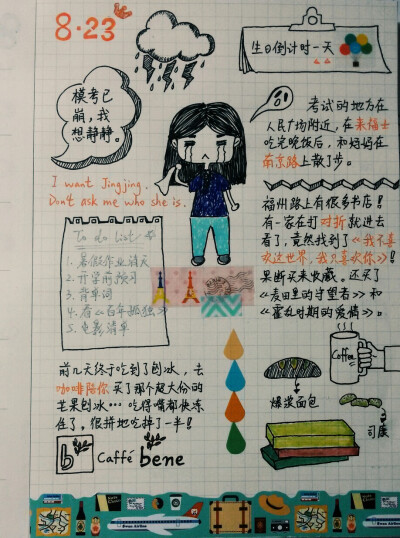 8·23
生日倒计时一天
模考已
崩,我
想静静。
I want Jingjing.
Don't ask me who she is.
To do list
1. 暑假作业清点
2. 开学前预习
3. 背单词
4. 看《百年孤独》
5. 电影清单
考试的地方在
人民广场附近,在来福士
吃完晚饭后,和妈妈在
南京路上散了步。
福州路上有很多书店!
有一家在打对折就进去
看了,竟然找到了《我不喜
欢这世界,我只喜欢你》!
果断买来收藏。还买了
《麦田里的守望者》和
《霍乱时期的爱情》。
前几天终于吃到了刨冰,去
咖啡陪你买了那个超大份的
芒果刨冰…吃得嘴都快冻
住了。很拼地吃掉了一半!
b Caffé bene
Coffee
爆浆面包
司康